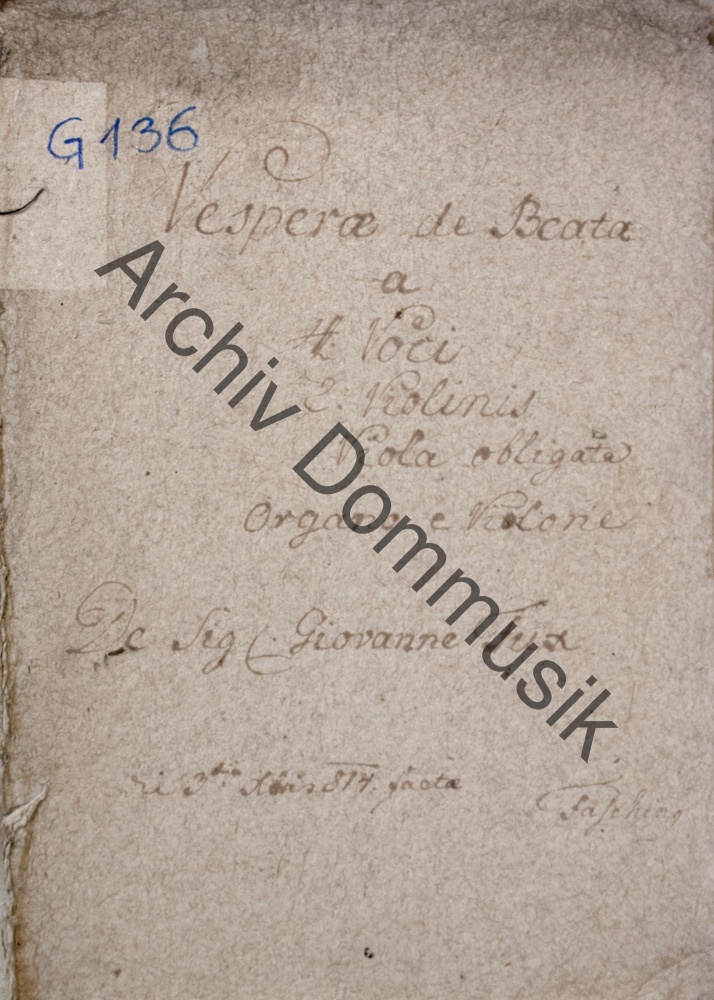 G 136
Vesperæ de Beata
a
4 Voci
2. Violinis
Viola obligata
Organo e Violone
De Sig. Giovanne Fux
3tia 814. facta
Fasching
Archiv Dommusik